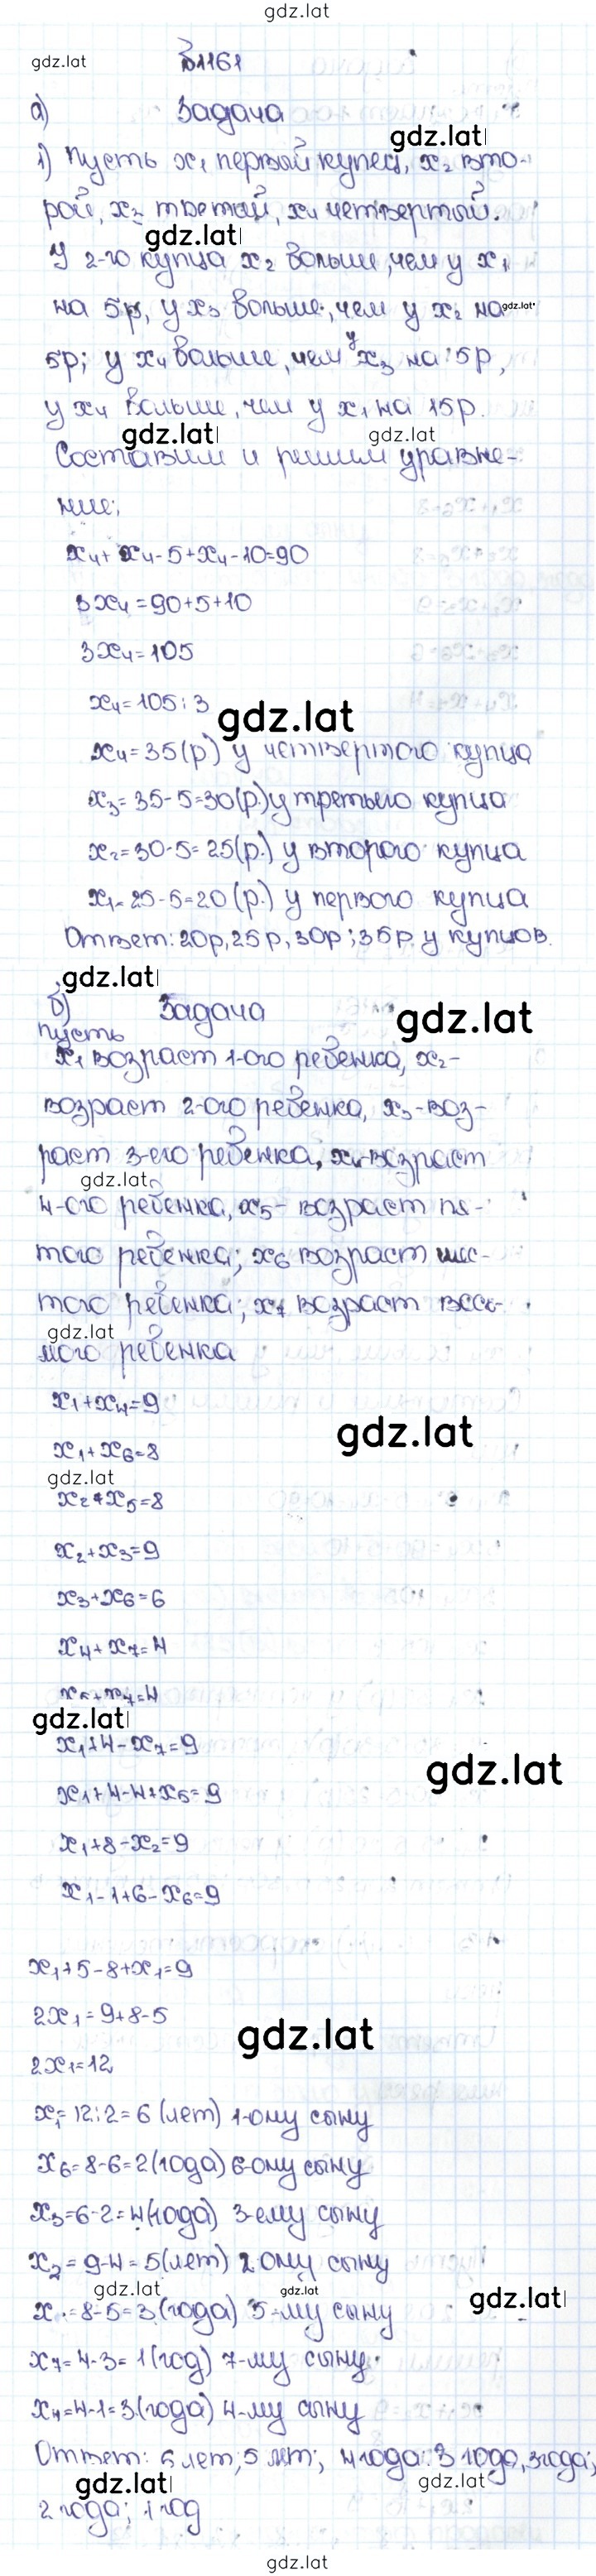 gdz.lat
gdz.lat
№1161
а) Задача
gdz.lat
1) Пусть x₁ первый купец, x₂ вто-
рой, x₃ третий, x₄ четвертый.
gdz.lat
У 2-го купца x₂ больше, чем у x₁
на 5р, у x₃ больше, чем у x₂ на
gdz.lat
5р; у x₄ больше, чем у x₃ на 5р,
у x₄ больше, чем у x₁ на 15р.
gdz.lat
gdz.lat
Составим и решим уравне-
ние:
x₄+ x₄-5+x₄-10=90
3x₄=90+5+10
3x₄=105
x₄=105:3
gdz.lat
x₄=35(р) у четвертого купца
x₃=35-5=30(р.) у третьего купца
x₂=30-5=25(р.) у второго купца
x₁=25-5=20(р.) у первого купца
Ответ: 20р, 25р, 30р; 35р. у купцов.
gdz.lat
б) Задача
gdz.lat
Пусть
x₁ возраст 1-ого ребенка, x₂-
возраст 2-ого ребенка, x₃-воз-
раст 3-его ребенка, x₄-возраст
gdz.lat
4-ого ребенка, x₅- возраст пя-
того ребенка; x₆ возраст шес-
того ребенка; x₇ возраст весь-
gdz.lat
мого ребенка
x₁+x₄=9
gdz.lat
x₁+x₆=8
gdz.lat
x₂+x₅=8
x₂+x₃=9
x₃+x₆=6
x₄+x₇=4
x₅+x₇=4
gdz.lat
x₁+4-x₇=9
gdz.lat
x₁+4-4+x₅=9
x₁+8-x₂=9
x₁-1+6-x₆=9
x₁+5-8+x₁=9
2x₁=9+8-5
gdz.lat
2x₁=12
x₁=12:2=6 (лет) 1-ому сыну
x₆=8-6=2(года) 6-ому сыну
x₃=6-2=4(года) 3-ему сыну
x₂=9-4=5(лет) 2 ому сыну
gdz.lat
gdz.lat
gdz.lat
=8-5=3(года) 5-му сыну
x₇=4-3=1(год) 7-му сыну
x₄=4-1=3(года) 4-му сыну
Ответ: 6 лет; 5 лет; 4 года: 3 года, 3 года;
gdz.lat
gdz.lat
2 года; 1 год
gdz.lat